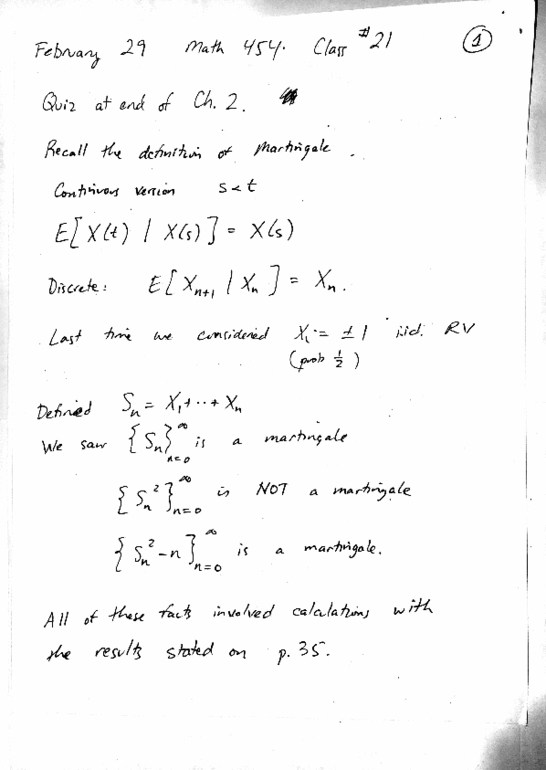 February 29 Math 454. Class #21 ①
Quiz at end of Ch. 2.
Recall the definition of Martingale.
Continuous version s<t
E[X(t) | X(s)] = X(s)
Discrete: E[Xₙ₊₁ | Xₙ] = Xₙ.
Last time we considered Xᵢ = ±1 i.i.d. RV
(prob ½)
Defined Sₙ = X₁+...+Xₙ
We saw {Sₙ}ₙ₌₀^∞ is a martingale
{Sₙ²}ₙ₌₀^∞ is NOT a martingale
{Sₙ²-n}ₙ₌₀^∞ is a martingale.
All of these facts involved calculations with
the results stated on p. 35.